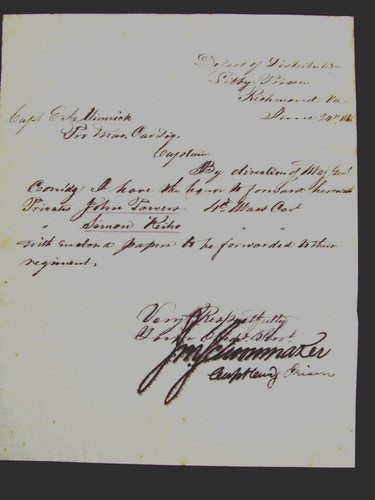 Depot of Distribution
Libby Prison
Richmond Va.
June 24th
Capt E A Minnick
Pro Mar. Car Dis.
Captain
By direction of Maj Genl
I have the honor to forward herewith
Privates John Powers 4th Mass Cav
" Simon Keiho " " "
with enclosed papers to be forwarded to their
regiment.
Very Respectfully
Your Obedt. Servt.
Capt Prison